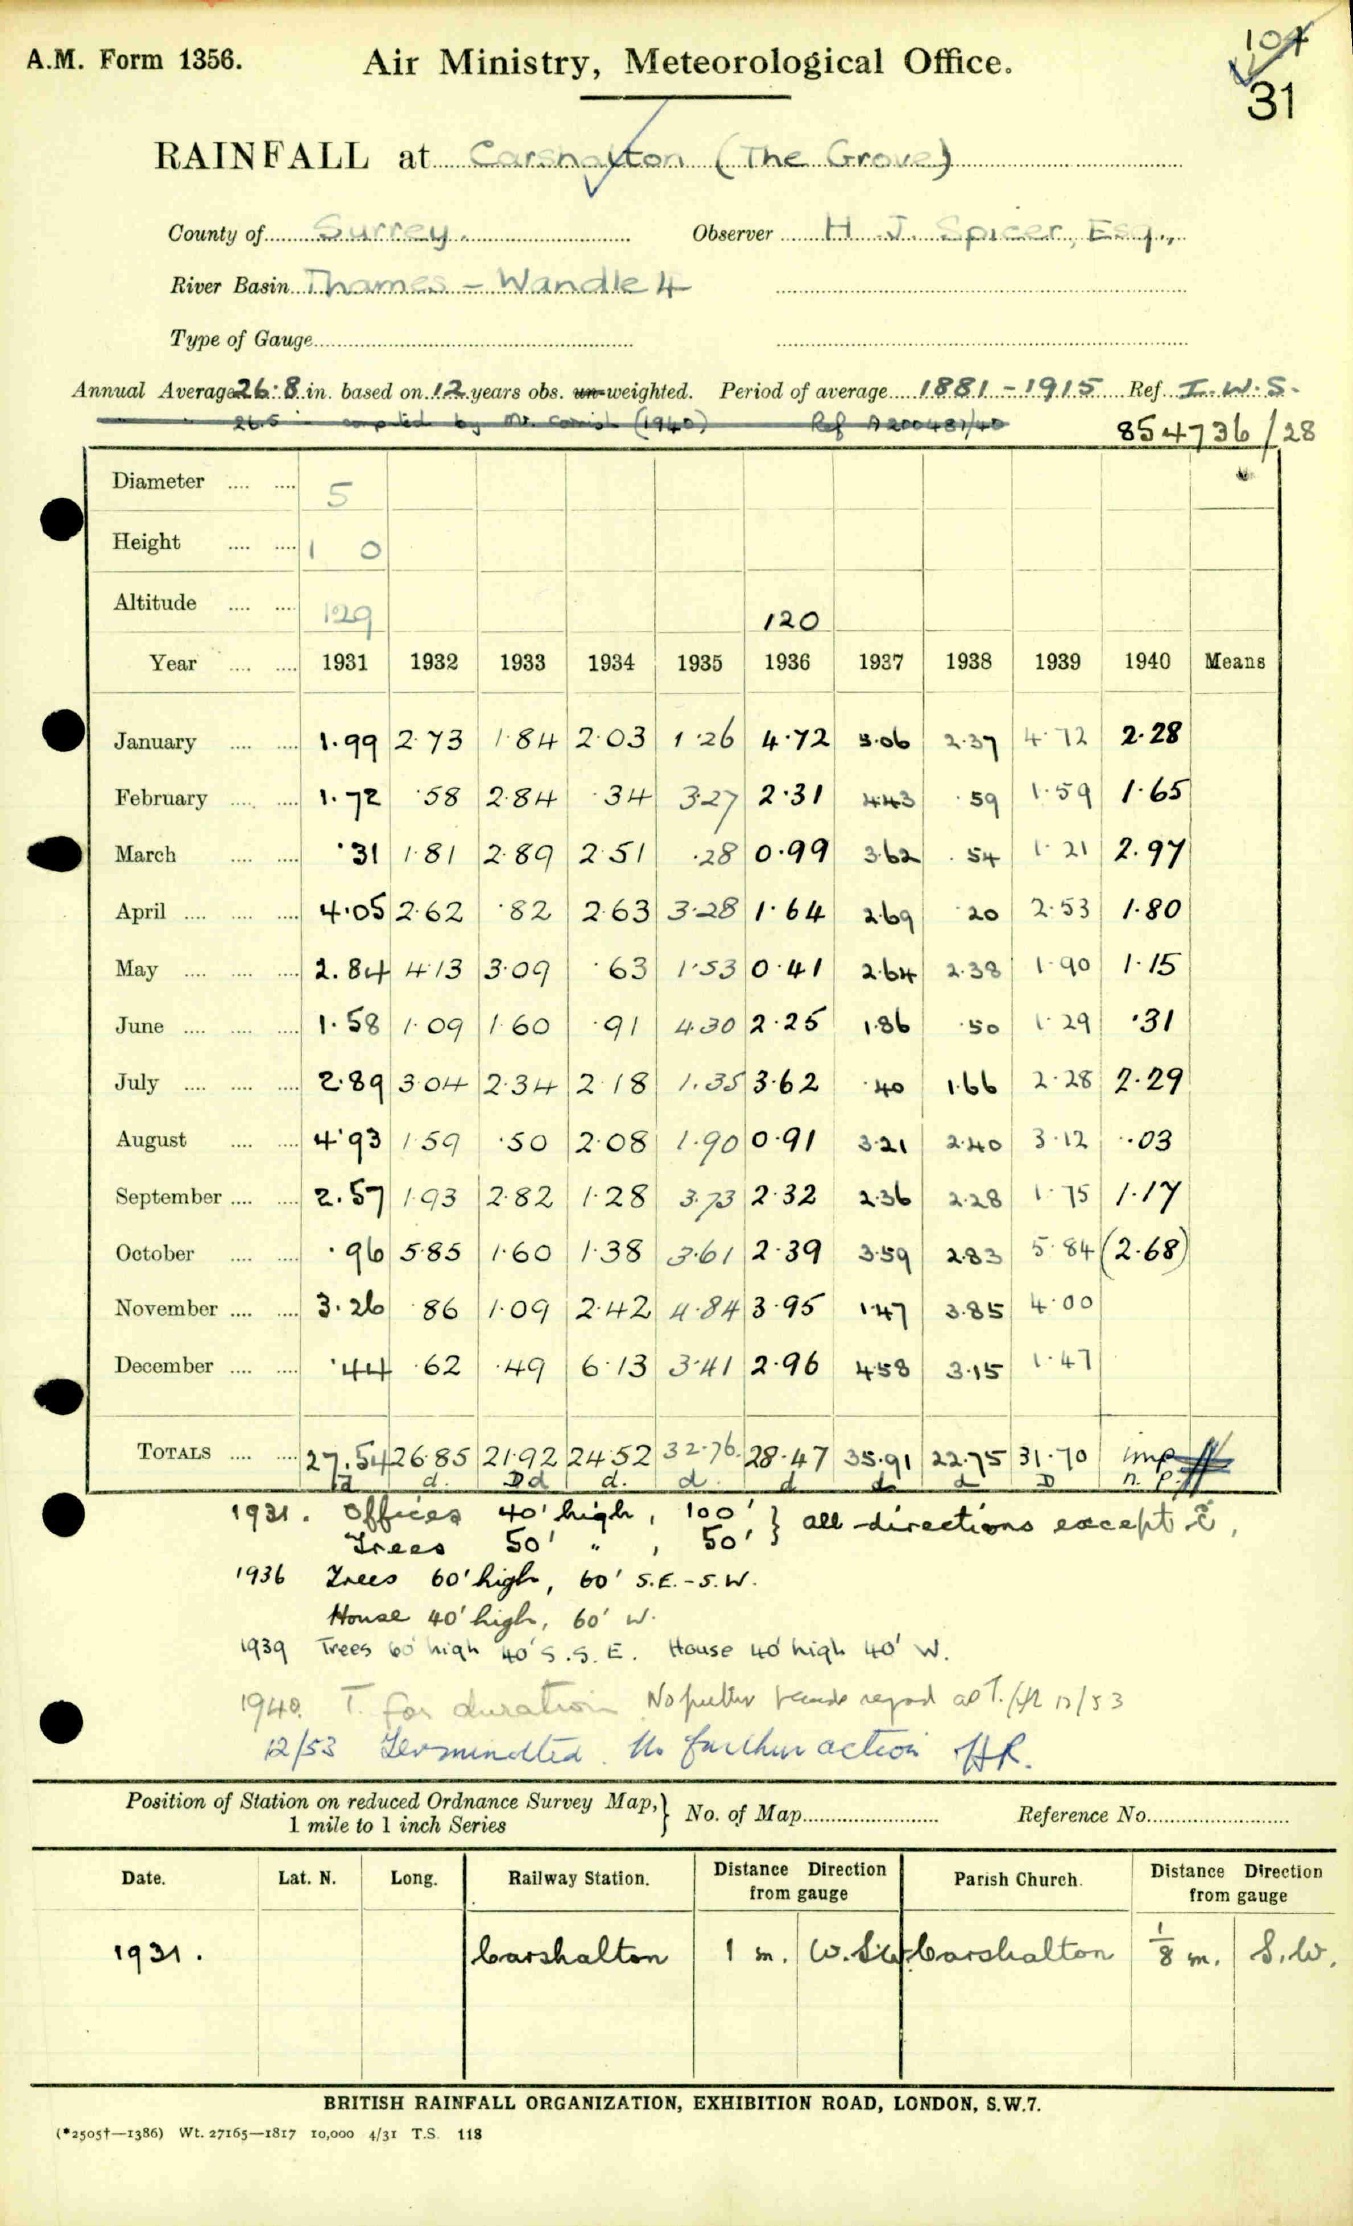 A.M. Form 1356. Air Ministry, Meteorological Office. 104
31
RAINFALL at Carshalton (The Grove)
County of Surrey. Observer H. J. Spicer, Esq.,
River Basin Thames - Wandle 4
Type of Gauge
Annual Average 26.8 in. based on 12 years obs. un-weighted. Period of average 1881-1915 Ref. I.W.S.
26.5 computed by Mr. (1940) Ref A200481/40 854736/28
Diameter .... .... 5
Height .... .... 1 0
Altitude .... .... 129 120
Year .... .... 1931 1932 1933 1934 1935 1936 1937 1938 1939 1940 Means
January .... .... 1.99 2.73 1.84 2.03 1.26 4.72 3.06 2.37 4.72 2.28
February .... .... 1.72 .58 2.84 .34 3.27 2.31 4.43 .59 1.59 1.65
March .... .... .31 1.81 2.89 2.51 .28 0.99 3.62 .54 1.21 2.97
April .... .... .... 4.05 2.62 .82 2.63 3.28 1.64 2.69 .20 2.53 1.80
May .... .... .... 2.84 4.13 3.09 .63 1.53 0.41 2.64 2.38 1.90 1.15
June .... .... .... 1.58 1.09 1.60 .91 4.30 2.25 1.86 .50 1.29 .31
July .... .... .... 2.89 3.04 2.34 2.18 1.35 3.62 .40 1.66 2.28 2.29
August .... .... 4.93 1.59 .50 2.08 1.90 0.91 3.21 2.40 3.12 .03
September .... .... 2.57 1.93 2.82 1.28 3.73 2.32 2.36 2.28 1.75 1.17
October .... .... .96 5.85 1.60 1.38 3.61 2.39 3.59 2.83 5.84 (2.68)
November .... .... 3.26 .86 1.09 2.42 4.84 3.95 1.47 3.85 4.00
December .... .... .44 .62 .49 6.13 3.41 2.96 4.58 3.15 1.47
TOTALS .... .... 27.54 26.85 21.92 24.52 32.76 28.47 35.91 22.75 31.70 imp
d d. Dd d. d. d d d D n. p.
1931. Offices 40' high, 100' } all directions except E,
Trees 50' " , 50' }
1936 Trees 60' high, 60' S.E.-S.W.
House 40' high, 60' W.
1939 Trees 60' high 40' S.S.E. House 40' high 40' W.
1940. T. for duration No further records regard as T. 12/53
12/53 Terminated. No further action HR.
Position of Station on reduced Ordnance Survey Map, } No. of Map Reference No.
1 mile to 1 inch Series
Date. Lat. N. Long. Railway Station. Distance Direction from gauge Parish Church. Distance Direction from gauge
1931. Carshalton 1 m. W.SW. Carshalton 1/8 m. S.W.
BRITISH RAINFALL ORGANIZATION, EXHIBITION ROAD, LONDON, S.W.7.
(*2505†—1386) Wt. 27165—1817 10,000 4/31 T.S. 118